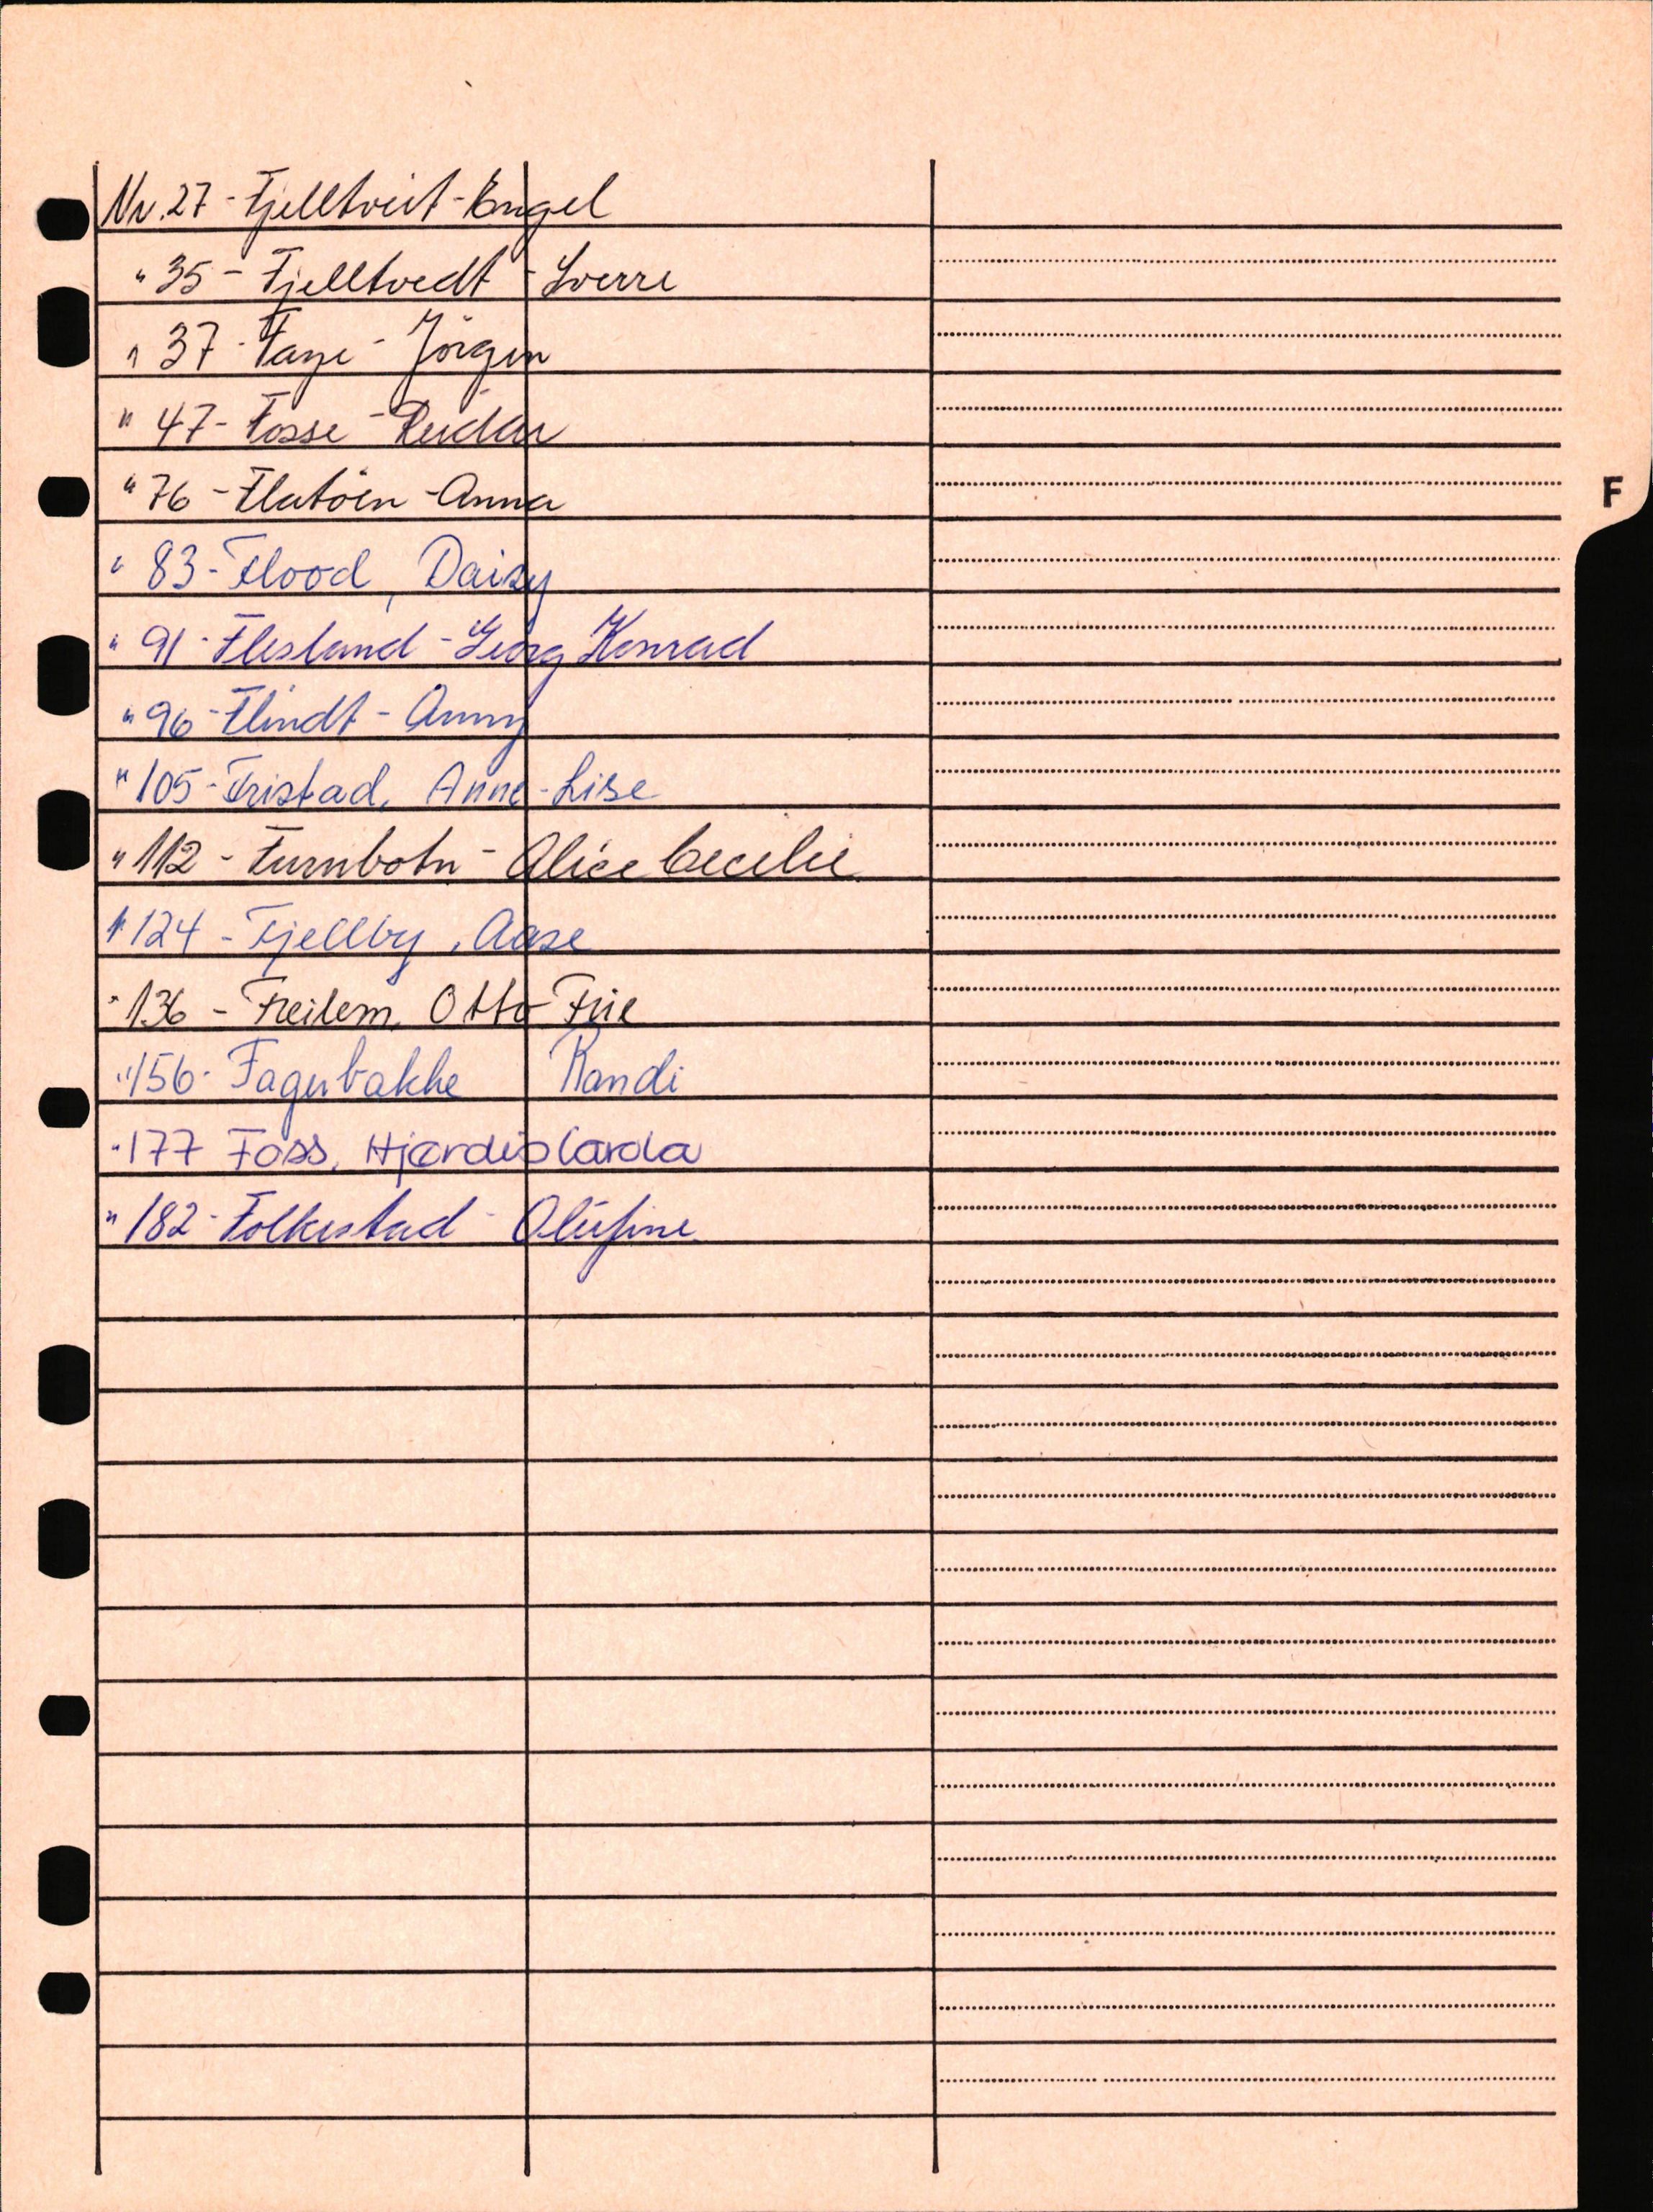 Nr. 27 - Fjelltveit - Engel
" 35 - Fjelltvedt - Sverre
" 37 - Faye - Jörgen
" 47 - Fosse - Reidar
" 76 - Flatöen - Anna
" 83 - Flood, Daisy
" 91 - Flesland - Georg Konrad
" 96 - Flindt - Anny
" 105 - Fristad, Anne-Lise
" 112 - Furnbotn - Alice Cecilie
" 124 - Fjellby, Aase
" 136 - Freilem, Otto
F
" 156 - Fagerbakke Randi
" 177 Foss, Hjørdis Carola
" 182 - Folkestad - Olufine